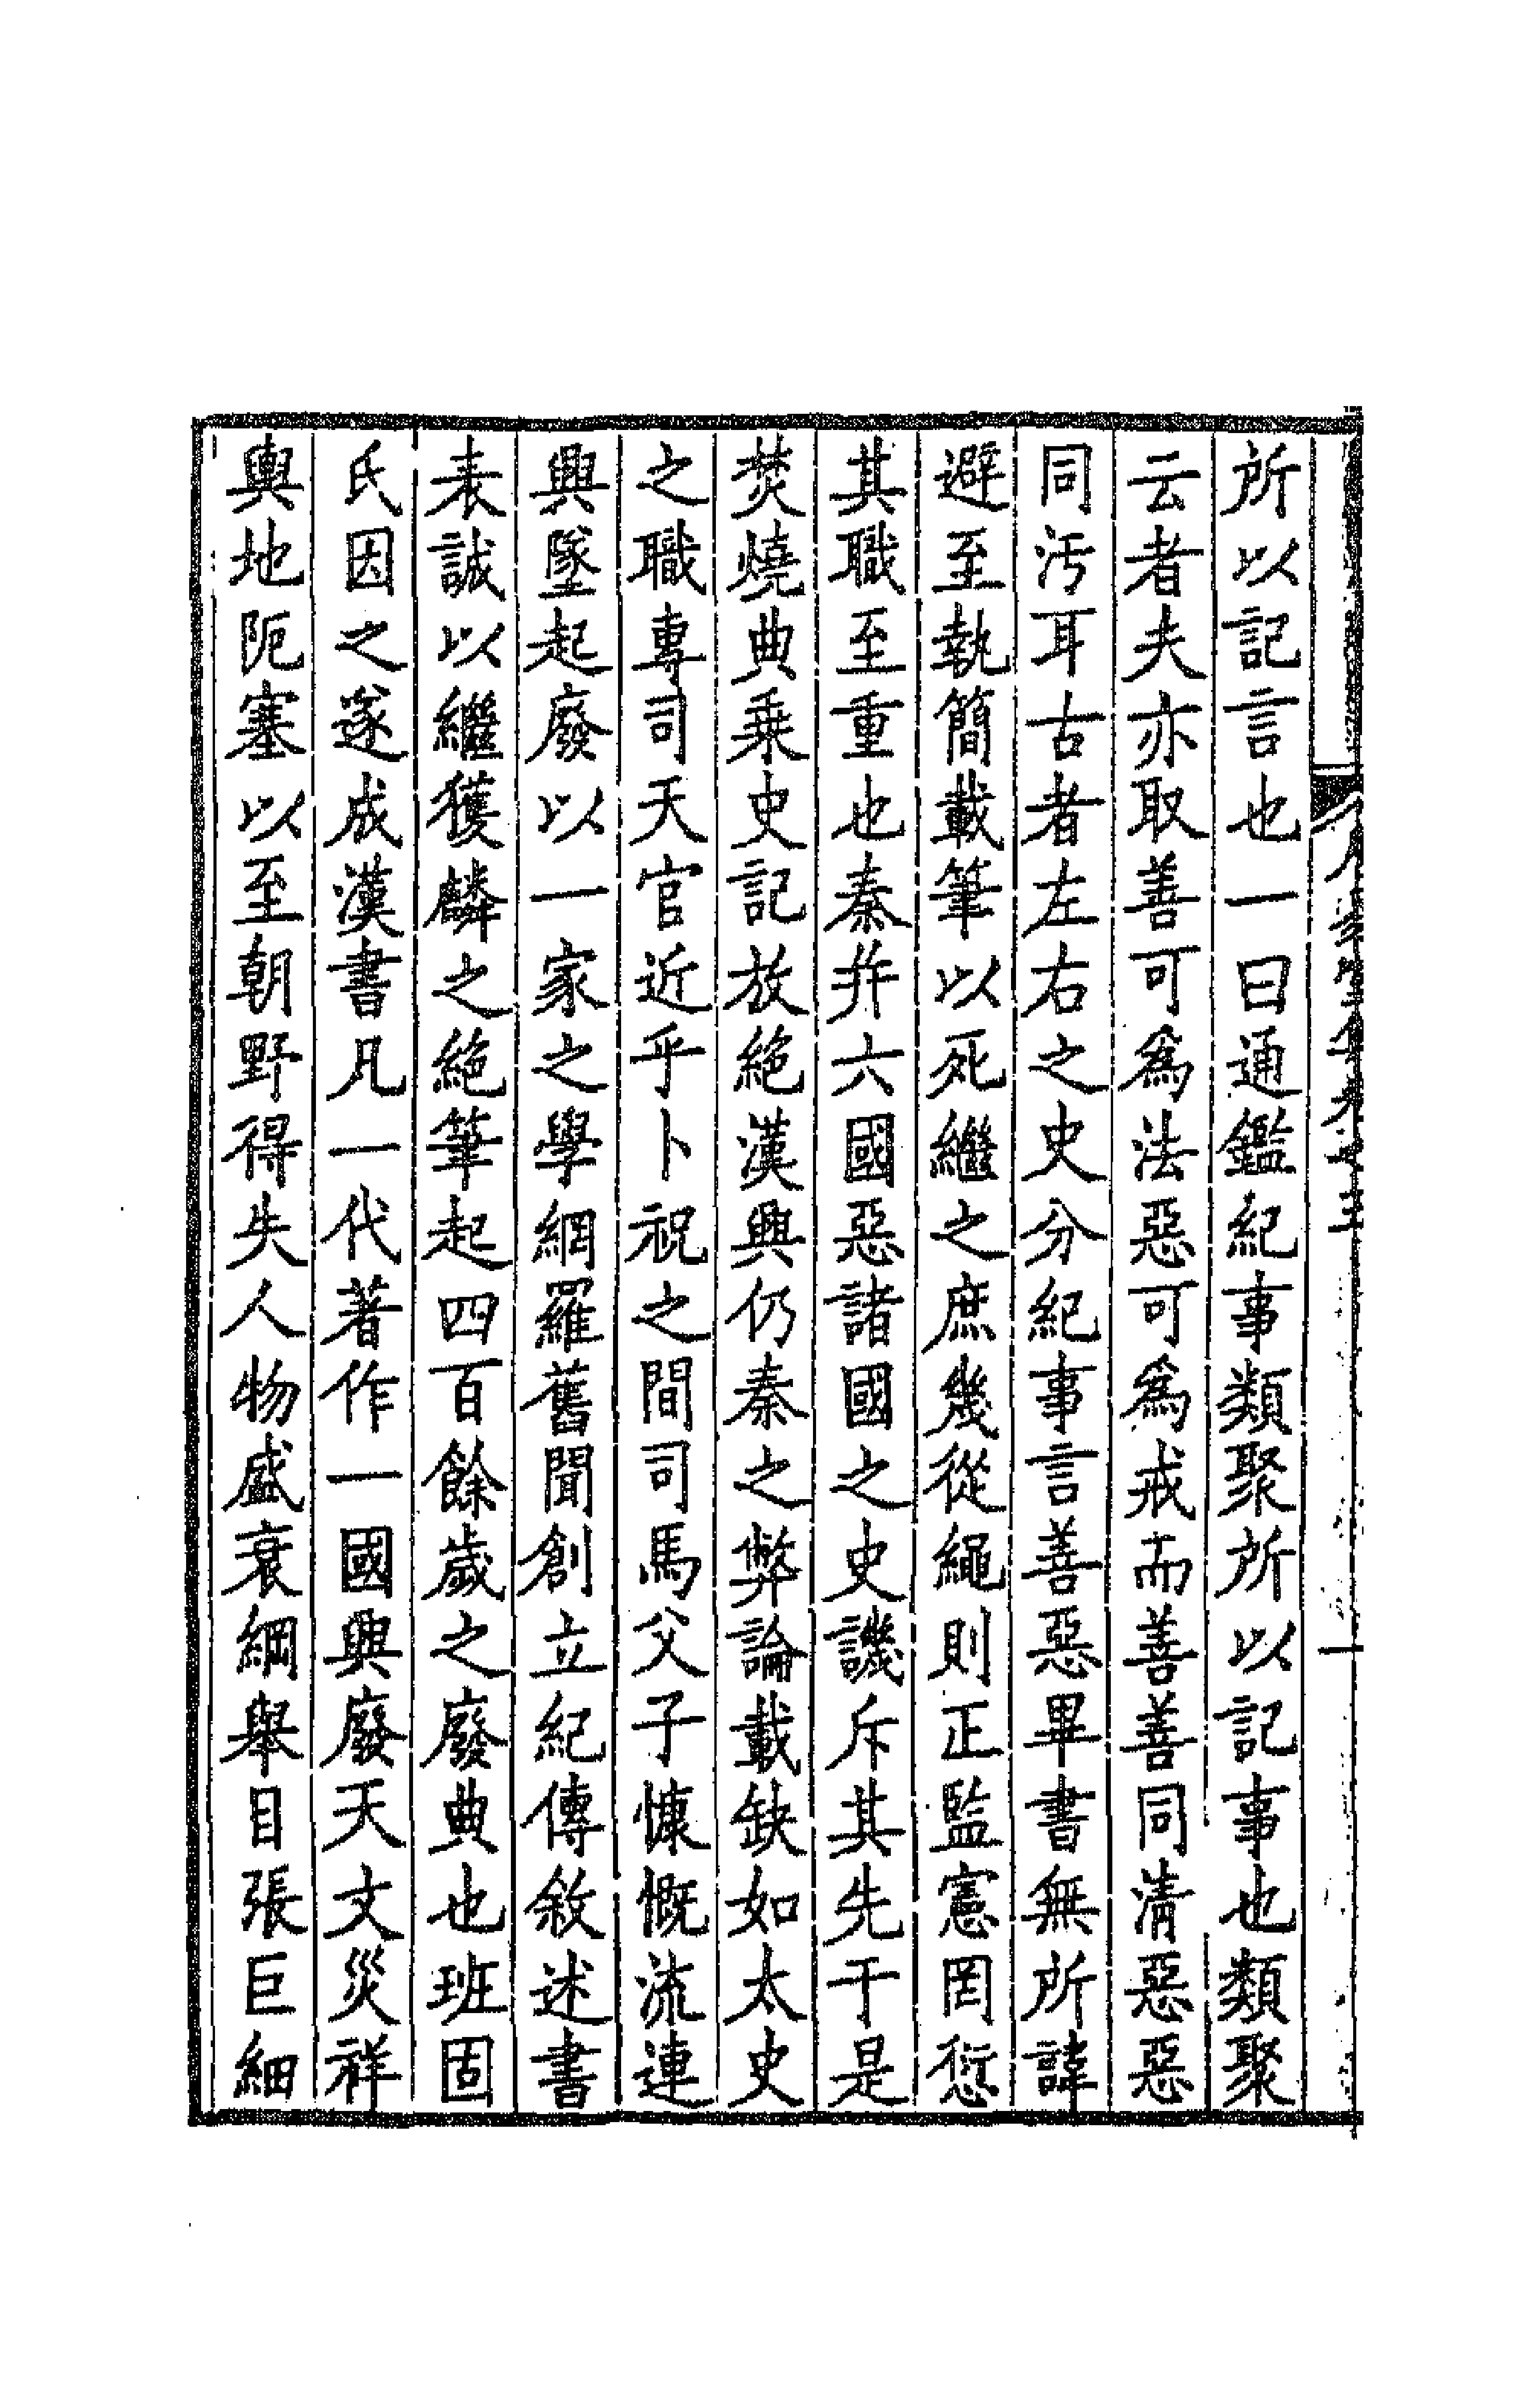 所以記言也一曰通鑑紀事類聚所以記事也類聚
云者夫亦取善可為法惡可為戒而善善同清惡惡
同汚耳古者左右之史分紀事言善惡畢書無所諱
避至執簡載筆以死繼之庶幾從繩則正監憲罔愆
其職至重也秦并六國惡諸國之史譏斥其先于是
焚燒典乗史記放絕漢興仍秦之弊論載缺如太史
之職專司天官近乎卜祝之間司馬父子慷慨流連
興墜起廢以一家之學網羅舊聞創立紀傳敘述書
表誠以繼獲麟之絕筆起四百餘歲之廢典也班固
氏因之遂成漢書凡一代著作一國興廢天文災祥
輿地阨塞以至朝野得失人物盛衰綱舉目張巨細